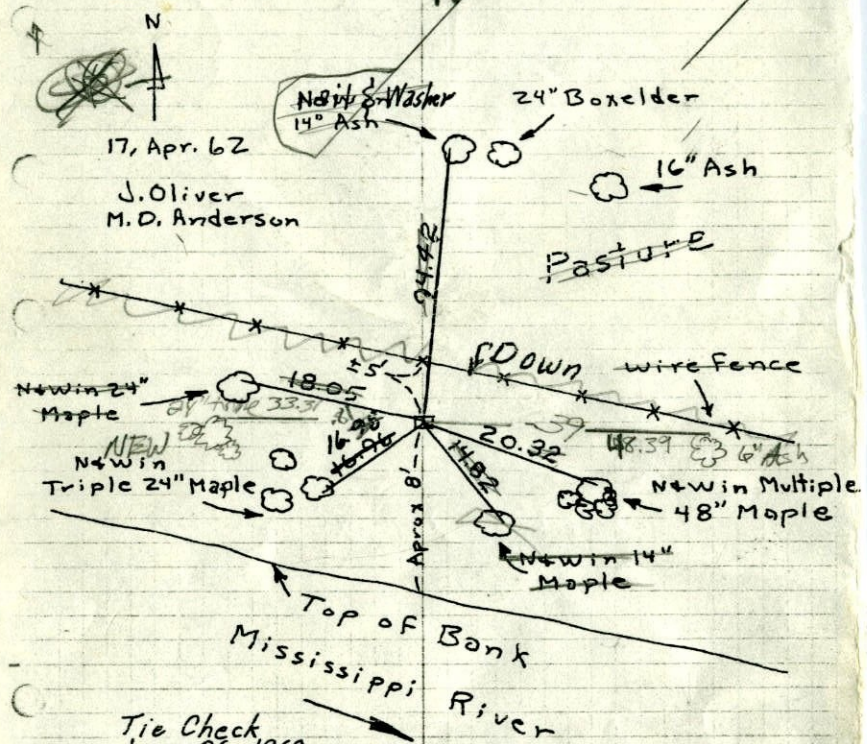 N
17, Apr. 62
J. Oliver
M. D. Anderson
Nail & Washer
14" Ash
24" Boxelder
16" Ash
Pasture
24.42
Down
wire fence
±5'
18.05
N&W in 24"
Maple
33.31
NEW
N&W in
Triple 24" Maple
16.96
20.32
48.39
6" Ash
14.82
N&W in Multiple
48" Maple
N&W in 14"
Maple
Aprox 8'
Top of Bank
Mississippi River
Tie Check